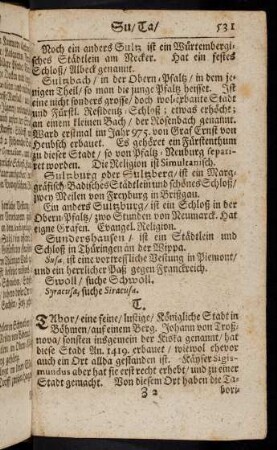 Su/ Ta/ 531
Noch ein anders Sultz ist ein Würtembergi-
sches Städtlein am Necker. Hat ein festes
Schloß/ Albeck genannt.
Sultzbach/ in der Obern-Pfaltz/ in dem je-
nigen Theil/ so man die junge Pfaltz heisset. Ist
eine nicht sonders grosse/ doch wolerbaute Stadt
und Fürstl. Residentz-Schloß; Ist erbaut an
an einem kleinen Bach/ der Rosenbach genannt.
Ward erstmal im Jahr 975. von Graf Ernst von
Hembsch erbauet. Es gehöret ein Fürstenthum
zu dieser Stadt/ so von Pfaltz-Neuburg separi-
ret worden. Die Religion ist Simultanisch.
Sultzburg oder Sultzberg/ ist ein Marg-
gräfisch-Badisches Städtlein und schönes Schloß/
zwey Meilen von Freyburg in Brißgau.
Ein anders Sultzburg/ ist ein Schloß in der
Obern-Pfaltz/ zwo Stunden von Neumarck. Hat
eigne Grafen. Evangel. Religion.
Sundershausen/ ist ein Städtlein und
Schloß in Thüringen an der Wippa.
Susa, ist eine vortreffliche Vestung in Piemont/
und ein herrlicher Paß gegen Franckreich.
Swoll/ suche Schwoll.
Syracusa, suche Siracusa.
T.
TAbor/ eine feine/ lustige/ Königliche Stadt in
Böhmen/ auf einem Berg. Johann von Troß-
nova/ sonsten insgemein der Kiska genannt/ hat
diese Stadt An. 1419. erbauet/ wiewol ehevor
auch ein Ort allda gestanden ist. Käyser Sigis-
mundus aber hat sie erst recht erhebt/ und zu einer
Stadt gemacht. Von diesem Ort haben die Ta-
Z 2 bori-